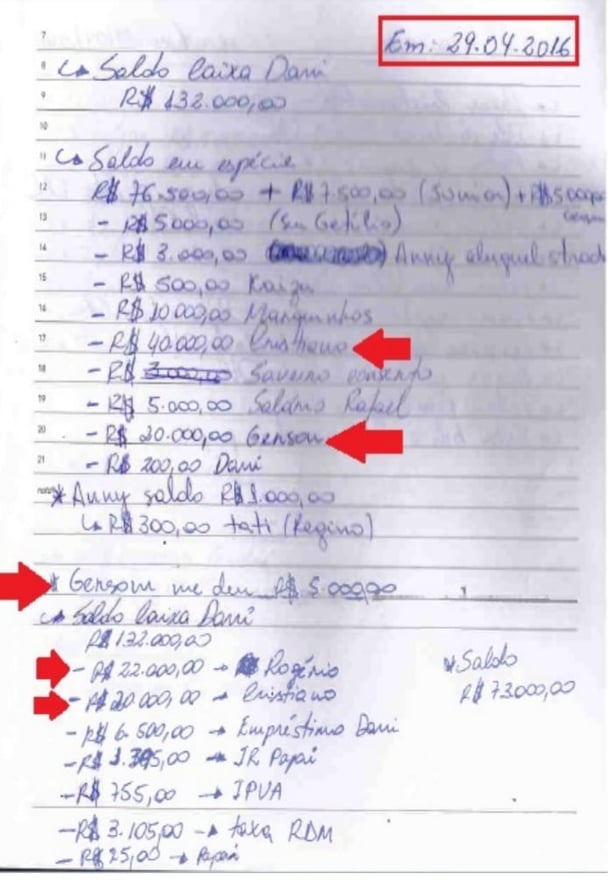 7
Em: 29.04.2016
8 ↳ Saldo Caixa Dani
9 R$ 132.000,00
10
11 ↳ Saldo em espécie
12 R$ 76.500,00 + R$ 7.500,00 (Junior) + R$ 5.000,00
Genson
13 - R$ 5.000,00 (Seu Getúlio)
14 - R$ 3.000,00 Anny aluguel strada
15 - R$ 500,00
16 - R$ 10.000,00 Manguinhos
17 - R$ 40.000,00 Cristiano
18 - R$ 3.000,00 Saveiro conserto
19 - R$ 5.000,00 Salário Rafael
20 - R$ 20.000,00 Genson
21 - R$ 200,00 Dani
* Anny saldo R$ 1.000,00
↳ R$ 300,00 tati (Regino)
* Gensom me deu R$ 5.000,00
↳ Saldo Caixa Dani
R$ 132.000,00
- R$ 22.000,00 → Rogério
* Saldo
- R$ 20.000,00 → Cristiano
R$ 73.000,00
- R$ 6.500,00 → Empréstimo Dani
- R$ 1.395,00 → IR Papai
- R$ 755,00 → IPVA
- R$ 3.105,00 → taxa RDM
- R$ 25,00 → Papai